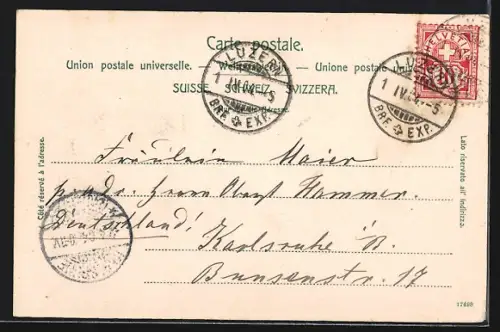 Carte postale.
Union postale universelle. — Weltpostverein. — Unione postale
SUISSE. SCHWEIZ. SVIZZERA.
LUZERN
1 IV.04.-5
BRF. EXP.
HELVETIA
10
1 IV.04.-5
BRF. EXP.
Côté réservé à l'adresse.
Lato riservato all' indirizzo.
Fräulein Maier
p. adr. Herrn Oberst Hammer.
Deutschland!
Karlsruhe i/B.
Bunsenstr. 17
17499